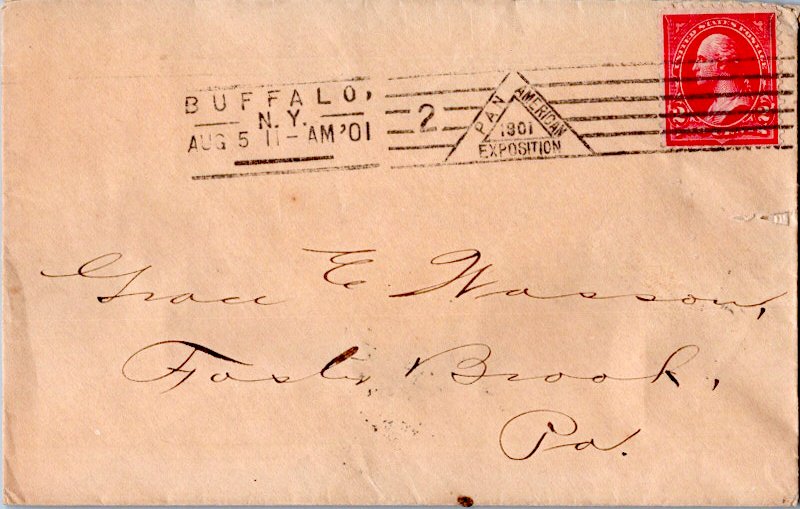 BUFFALO,
N.Y.
AUG 5 11-AM '01
2
PAN AMERICAN
1901
EXPOSITION
UNITED STATES POSTAGE
2 2
Grace E. Wasson,
Foster Brook,
Pa.